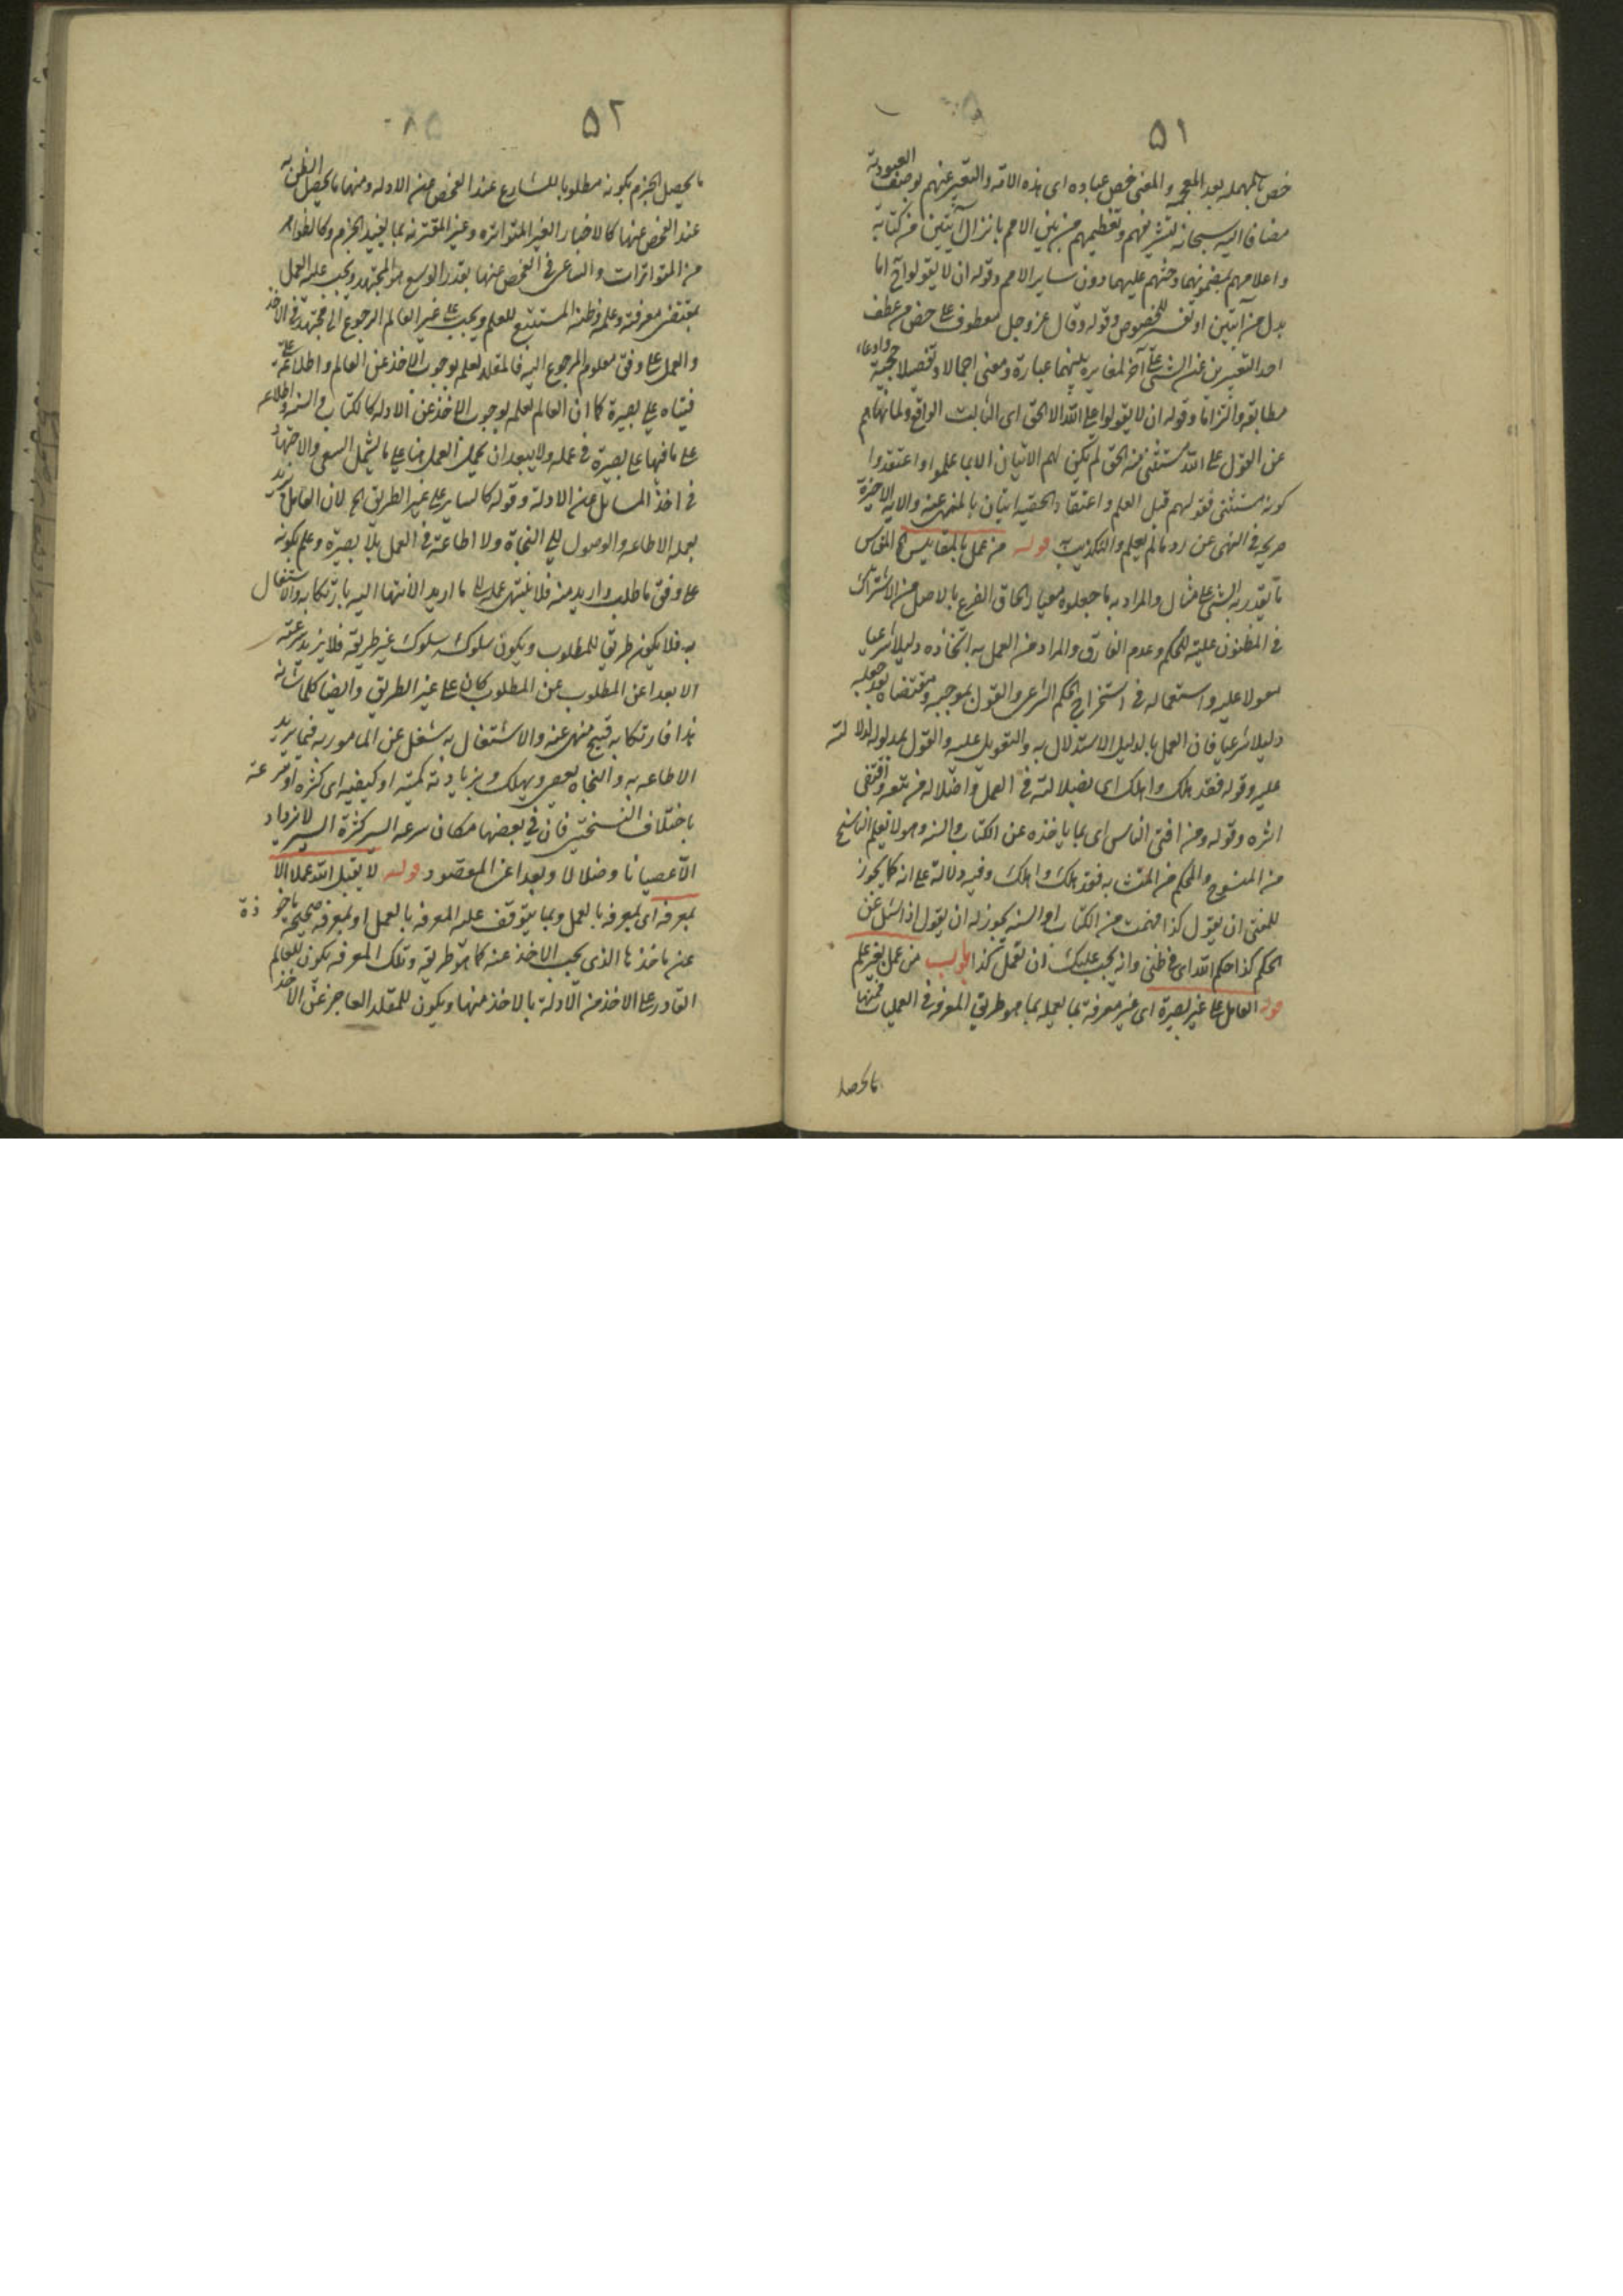 ٥١
خص بالمهمله بعد المعجمه والمعنى خص عباده اى هذه الامة والتعبير عنهم بوصف العبودية
مضافا اليه سبحانه لتشريفهم وتعظيمهم من بين الامم بانزال آيتين من كتابه
واعلامهم بمضمونهما وحثهم عليهما دون ساير الامم وقوله ان لا يقولوا آخ اما
بدل من آيتين او تفسير للخصوص وقوله وقال عز وجل معطوف على خص من عطف
احد التعبيرين عن الشئ على آخر لمغايرة بينهما عبارة ومعنى اجمالا وتفصيلا
مطابقة والتزاما وقوله ان لا يقولوا على الله الا الحق اى الثابت الواقع ولما نهاهم
عن القول على الله مستثنى منه الحق لم يكن لهم الاتيان الا بما علموا او اعتقدوا
كونه مستثنى فقولهم قبل العلم واعتقاد الحقيه اتيان بالمنهى عنه والآية الاخيرة
صريحة فى النهى عن رد ما لم يعلم والتكذيب به قوله من عمل بالمقاييس الخ المقياس
ما يقدر به الشئ على مثال والمراد به ما جعلوه معيار الحاق الفرع بالاصل من الاشتراك
فى المظنون عليته للحكم وعدم الفارق والمراد من العمل به اتخاذه دليلا شرعيا
معولا عليه واستعماله فى استخراج الحكم الشرعى والقول بموجبه ومقتضاه بعد جعله
دليلا شرعيا فان العمل بالدليل الاستدلال به والتعويل عليه والقول بمدلوله لدلالته
عليه وقوله فقد هلك واهلك اى بضلالته فى العمل واضلاله من تبعه واقتفى
اثره وقوله ومن افتى الناس اى بما ياخذه عن الكتاب والسنه وهو لا يعلم الناسخ
من المنسوخ والمحكم من المتشابه فقد هلك واهلك وفيه دلالة على انه كما يجوز
للمفتى ان يقول كذا فهمت من الكتاب او السنه يجوز له ان يقول اذا سئل عن
الحكم كذا حكم الله اى فى ظنى وانه يجب عليك ان تعمل بكذا باب من عمل بغير علم
قوله العامل على غير بصيرة اى غير معرفة بما يعمله بما هو طريق المعرفة فى العمليات فمنها
ما يحصل
٥٢
ما يحصل الجزم بكونه مطلوبا للشارع عند الفحص من الادله ومنها ما يحصل الظن به
عند الفحص عنها كالاخبار الغير المتواتره وغير المقترنه بما يفيد الجزم وكالظواهر
من المتواترات والساعى فى الفحص عنها بقدر الوسع هو المجتهد ويجب عليه العمل
بمقتضى معرفته وعلمه وظنه المستتبع للعلم ويجب على غير العالم الرجوع الى مجتهد فى الاخذ
والعمل على وفق معلوم المرجوع اليه فالمقلد لعلمه بوجوب الاخذ عن العالم واطلاعه على
فتياه على بصيرة كما ان العالم لعلمه بوجوب الاخذ عن الادله كالكتاب والسنه واطلاعه
على ما فيها على بصيرة فى عمله ولا يبعد ان يحمل العمل هنا على ما يشمل السعى والاجتهاد
فى اخذ المسائل من الادلة وقوله كالساير على غير الطريق الخ لان العامل يريد
بعمله الاطاعه والوصول الى النجاة ولا اطاعة فى العمل بلا بصيرة وعلم بكونه
على وفق ما طلب واريد منه فلا ينتهى عمله الى ما اريد الانتهاء اليه بارتكابه والاشتغال
به فلا يكون طريق للمطلوب ويكون سلوكه سلوك غير طريقه فلا يزيد سرعته
الا بعدا عن المطلوب كان على غير الطريق وايضا كلما شانه
هذا فارتكابه قبيح منهى عنه والاشتغال به شغل عن المامور به فيما يريد
الاطاعه به والنجاه يعصى ويهلك وبزيادته كمية او كيفيه اى كثره او سرعة
باختلاف النسختين فان فى بعضها مكان سرعه السير كثرة السير لا يزداد
الا عصيانا وضلالا وبعدا عن المقصود قوله لا يقبل الله عملا الا
بمعرفه اى بمعرفه بالعمل وبما يتوقف عليه المعرفه بالعمل او بمعرفه صحيحه ماخوذة
عن ماخذها الذى يجب الاخذ عنه كما هو طريقه وتلك المعرفه يكون للعالم
القادر على الاخذ من الادلة بالاخذ منها ويكون للمقلد العاجز عن الاخذ